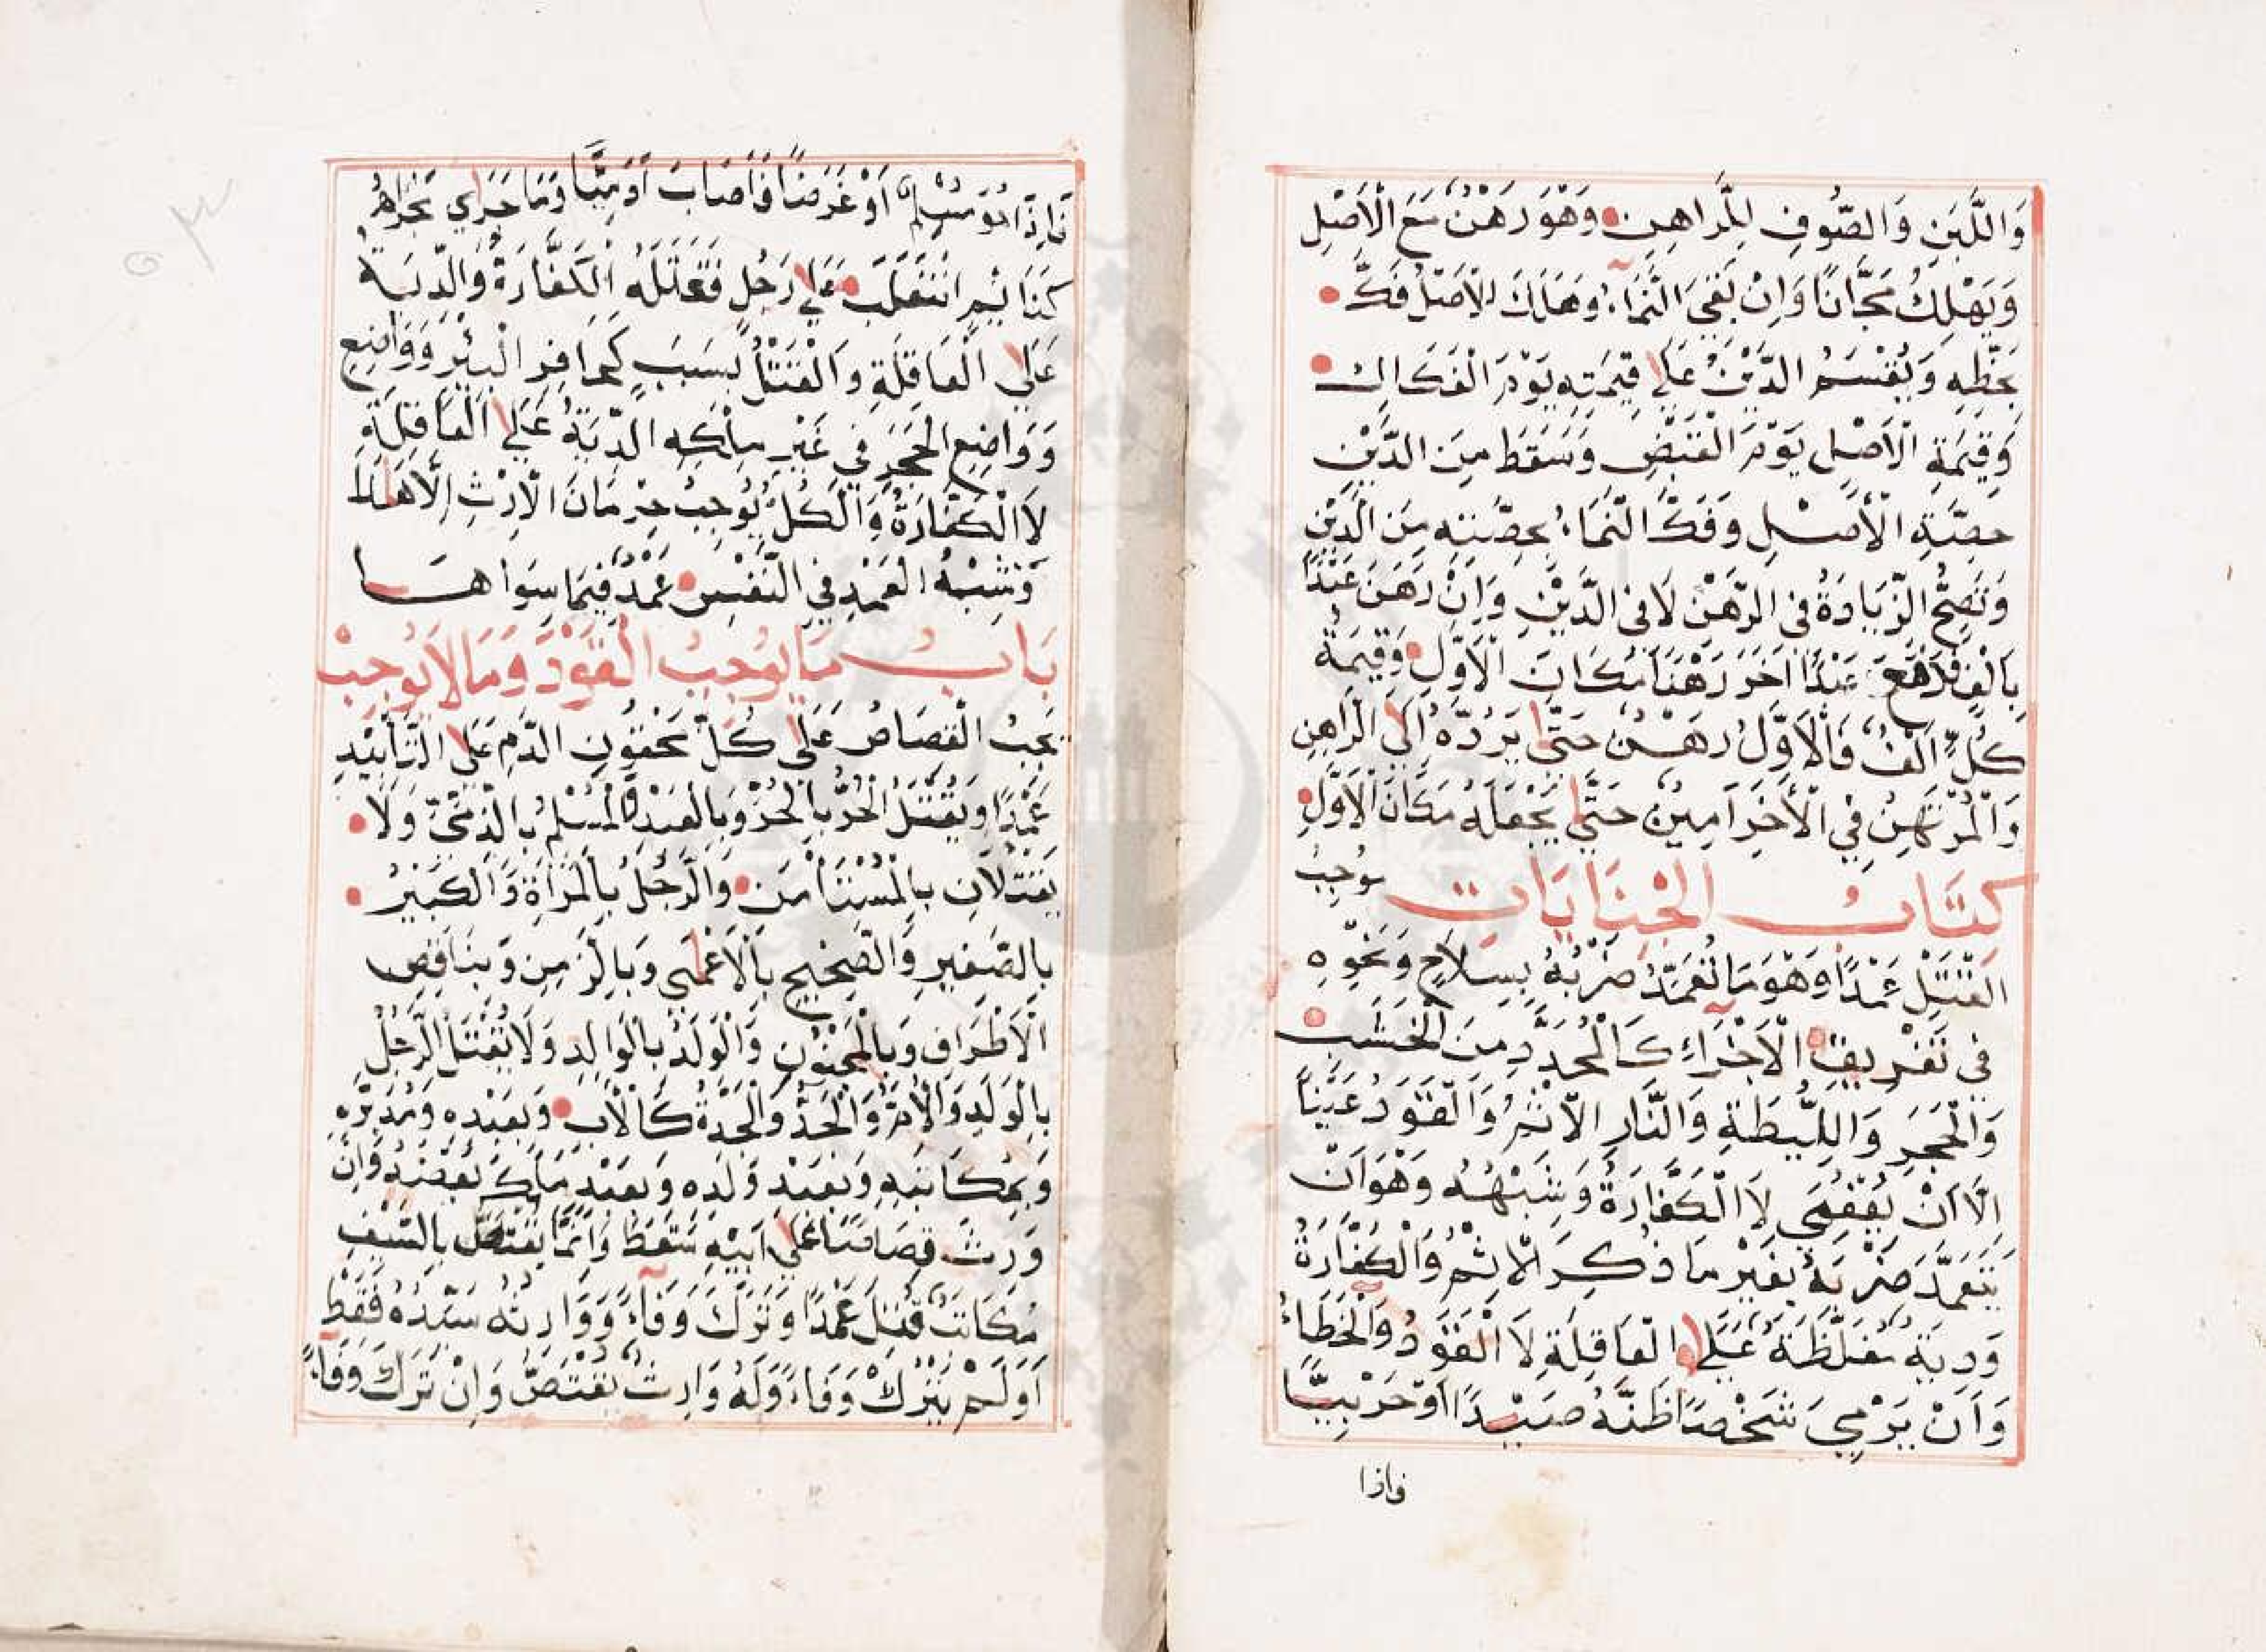 وَاللَّبَنِ وَالصُّوفِ لِلرَّاهِنِ وَهُوَ رَهْنٌ مَعَ الْأَصْلِ
وَيَهْلِكُ مَجَّانًا وَإِنْ بَقِيَ النَّمَاءُ وَهَلَكَ الْأَصْلُ فُكَّ
بِحَظِّهِ وَيُقْسَمُ الدَّيْنُ عَلَى قِيمَتِهِ يَوْمَ الْفَكَاكِ
وَقِيمَةِ الْأَصْلِ يَوْمَ الْقَبْضِ وَسَقَطَ مِنَ الدَّيْنِ
حِصَّةِ الْأَصْلِ وَفَكَّ النَّمَاءُ بِحِصَّتِهِ مِنَ الدَّيْنِ
وَتَصِحُّ الزِّيَادَةُ فِي الرَّهْنِ لَا فِي الدَّيْنِ وَإِنْ رَهَنَ عَبْدًا
بِأَلْفٍ فَدَفَعَ عَبْدًا آخَرَ رَهْنًا مَكَانَ الْأَوَّلِ وَقِيمَةُ
كُلٍّ أَلْفٌ فَالْأَوَّلُ رَهْنٌ حَتَّى يَرُدَّهُ إِلَى الرَّاهِنِ
وَالْمُرْتَهِنُ فِي الْآخَرِ أَمِينٌ حَتَّى يَجْعَلَهُ مَكَانَ الْأَوَّلِ
كِتَابُ الْجِنَايَاتِ مُوجَبُ
الْقَتْلِ عَمْدًا وَهُوَ مَا تُعُمِّدَ ضَرْبُهُ بِسِلَاحٍ وَنَحْوِهِ
فِي تَفْرِيقِ الْأَجْزَاءِ كَالْمُحَدَّدِ مِنَ الْخَشَبِ
وَالْحَجَرِ وَاللِّيطَةِ وَالنَّارِ الْإِثْمُ وَالْقَوَدُ عَيْنًا
إِلَّا أَنْ يُعْفَى لَا الْكَفَّارَةُ وَشِبْهُهُ وَهُوَ أَنْ
يَتَعَمَّدَ ضَرْبَهُ بِغَيْرِ مَا ذُكِرَ الْإِثْمُ وَالْكَفَّارَةُ
وَدِيَةٌ مُغَلَّظَةٌ عَلَى الْعَاقِلَةِ لَا الْقَوَدُ وَالْخَطَاءُ
وَأَنْ يَرْمِيَ شَخْصًا ظَنَّهُ صَيْدًا أَوْ حَرْبِيًّا
فاذا
فَإِذَا هُوَ مُسْلِمٌ أَوْ غَرَضًا فَأَصَابَ آدَمِيًّا وَمَا جَرَى مَجْرَاهُ
كَنَائِمٍ انْقَلَبَ عَلَى رَجُلٍ فَقَتَلَهُ الْكَفَّارَةُ وَالدِّيَةُ
عَلَى الْعَاقِلَةِ وَالْقَتْلُ بِسَبَبٍ كَحَافِرِ الْبِئْرِ وَوَاضِعِ
وَوَاضِعِ الْحَجَرِ فِي غَيْرِ مِلْكِهِ الدِّيَةُ عَلَى الْعَاقِلَةِ
لَا الْكَفَّارَةُ وَالْكُلُّ يُوجِبُ حِرْمَانَ الْإِرْثِ إِلَّا هَذَا
وَشِبْهُ الْعَمْدِ فِي النَّفْسِ عَمْدٌ فِيمَا سِوَاهَا
بَابُ مَا يُوجِبُ الْقَوَدَ وَمَا لَا يُوجِبُ
يَجِبُ الْقِصَاصُ عَلَى كُلِّ مَحْقُونِ الدَّمِ عَلَى التَّأْبِيدِ
عَمْدًا وَيُقْتَلُ الْحُرُّ بِالْحُرِّ وَبِالْعَبْدِ وَالْمُسْلِمُ بِالذِّمِّيِّ وَلَا
يُقْتَلَانِ بِالْمُسْتَأْمَنِ وَالرَّجُلُ بِالْمَرْأَةِ وَالْكَبِيرُ
بِالصَّغِيرِ وَالصَّحِيحِ بِالْأَعْمَى وَبِالزَّمِنِ وَبِنَاقِصِ
الْأَطْرَافِ وَبِالْمَجْنُونِ وَالْوَلَدُ بِالْوَالِدِ وَلَا يُقْتَلُ الرَّجُلُ
بِالْوَلَدِ وَالْأُمُّ وَالْجَدُّ وَالْجَدَّةُ كَالْأَبِ وَبِعَبْدِهِ وَمُدَبَّرِهِ
وَبِمُكَاتَبِهِ وَبِعَبْدِ وَلَدِهِ وَبِعَبْدٍ مَلَكَ بَعْضَهُ وَإِنْ
وَرِثَ قِصَاصًا عَلَى أَبِيهِ سَقَطَ وَإِنَّمَا يُقْتَصُّ بِالسَّيْفِ
مُكَاتَبٌ قُتِلَ عَمْدًا وَتَرَكَ وَفَاءً وَوَارِثُهُ سَيِّدُهُ فَقَطْ
أَوْ لَمْ يَتْرُكْ وَفَاءً وَلَهُ وَارِثٌ يُقْتَصُّ وَإِنْ تَرَكَ وَفَاءً